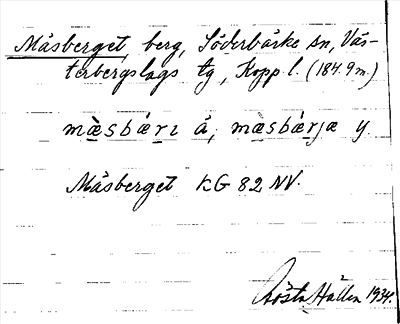 Måsberget, berg, Söderbärke sn, Väs-
terbergslags tg, Kopp. l. (187.9 m.)
mæ̀sbærɩ å, mæsbærjæ y.
Måsberget KG 82 NV.
Gösta Hallén 1934.